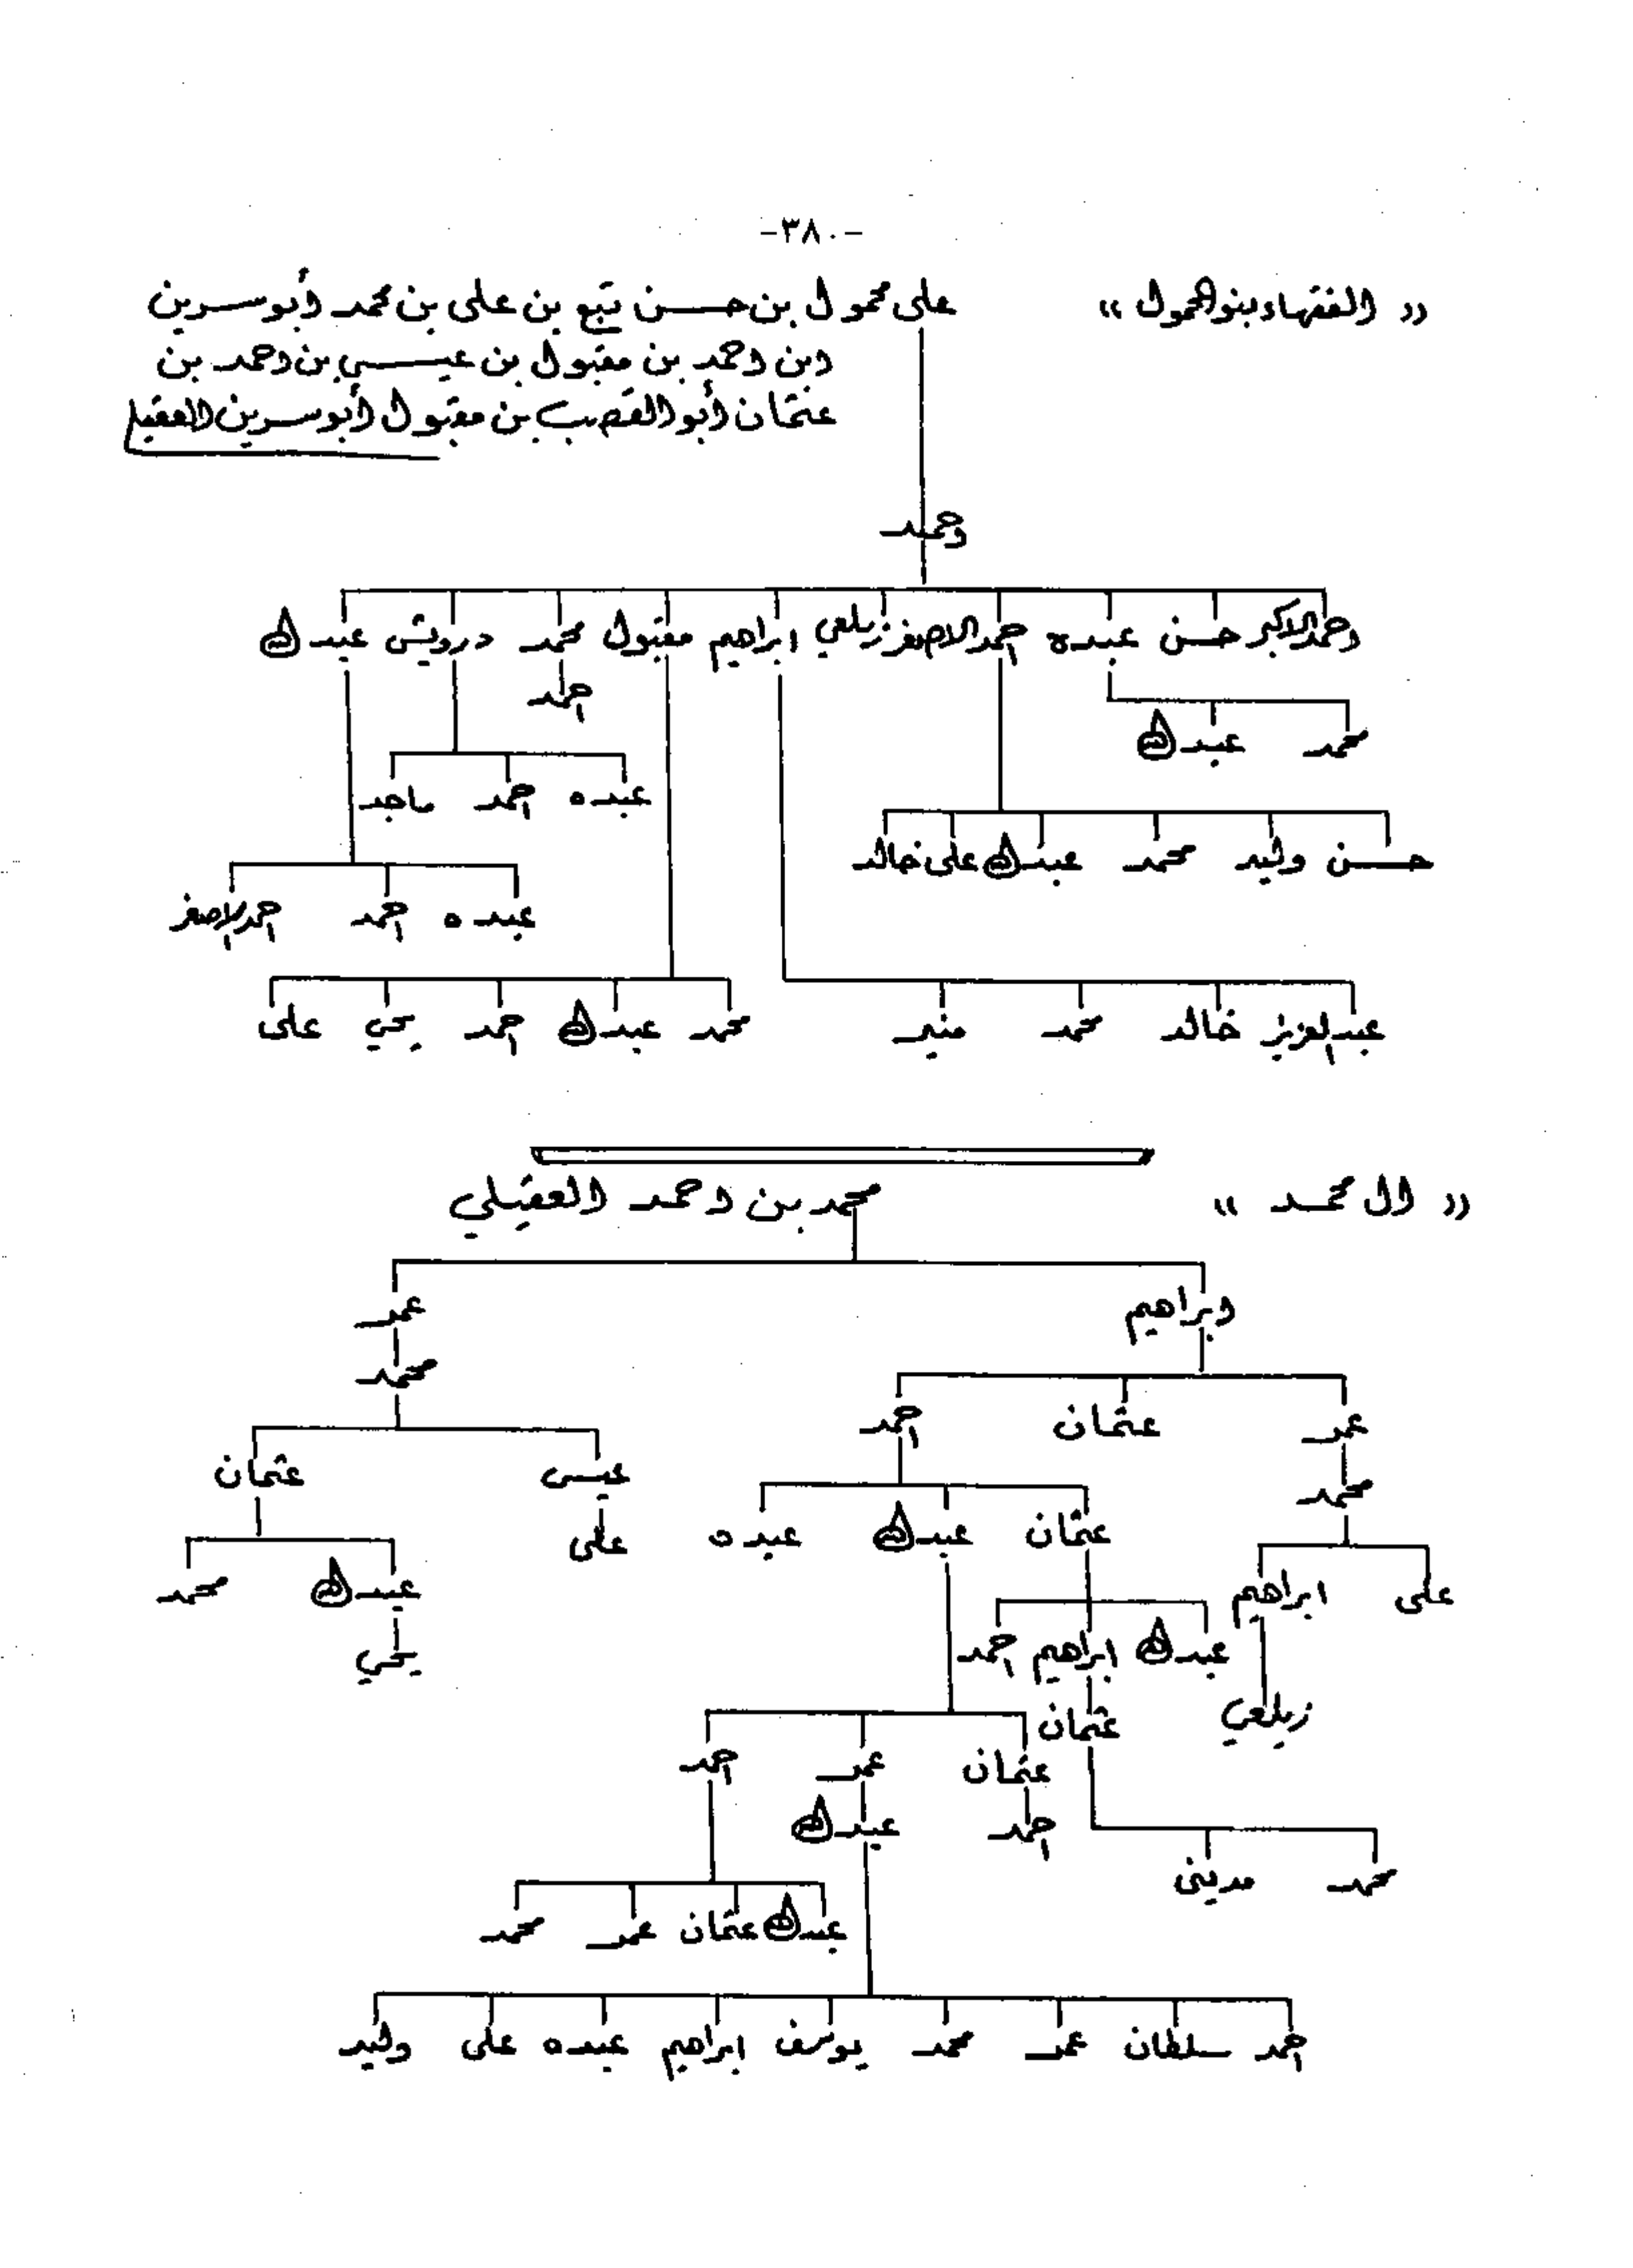 -٣٨٠-
« الفقهاء بنو المحمول »
على محمول بن حسن تبع بن على بن محمد أبو سرين
ابن احمد بن مقبول بن عيسى بن احمد بن
عثمان أبو القصب بن مقبول أبو سرين العقيلي
احمد
احمد الاكبر حسن عبده احمد الاصغر زيلعي ابراهيم مقبول محمد درويش عبدالله
احمد
محمد عبدالله
عبده احمد ماجد
حسن وليد محمد عبدالله على خالد
عبده احمد احمد الاصغر
عبدالعزيز خالد محمد منير
محمد عبدالله احمد يحي على
« ال محمد »
محمد بن احمد العقيلي
ابراهيم عمر
محمد
عمر عثمان احمد
عيسى عثمان
محمد
عثمان عبدالله عبده
على
على ابراهيم
عبدالله محمد
عبدالله ابراهيم احمد
يحي
زيلعي
عثمان
عثمان عمر احمد
احمد
عبدالله
محمد مديني
عبدالله عثمان عمر محمد
احمد سلطان عمر محمد يوسف ابراهيم عبده على وليد